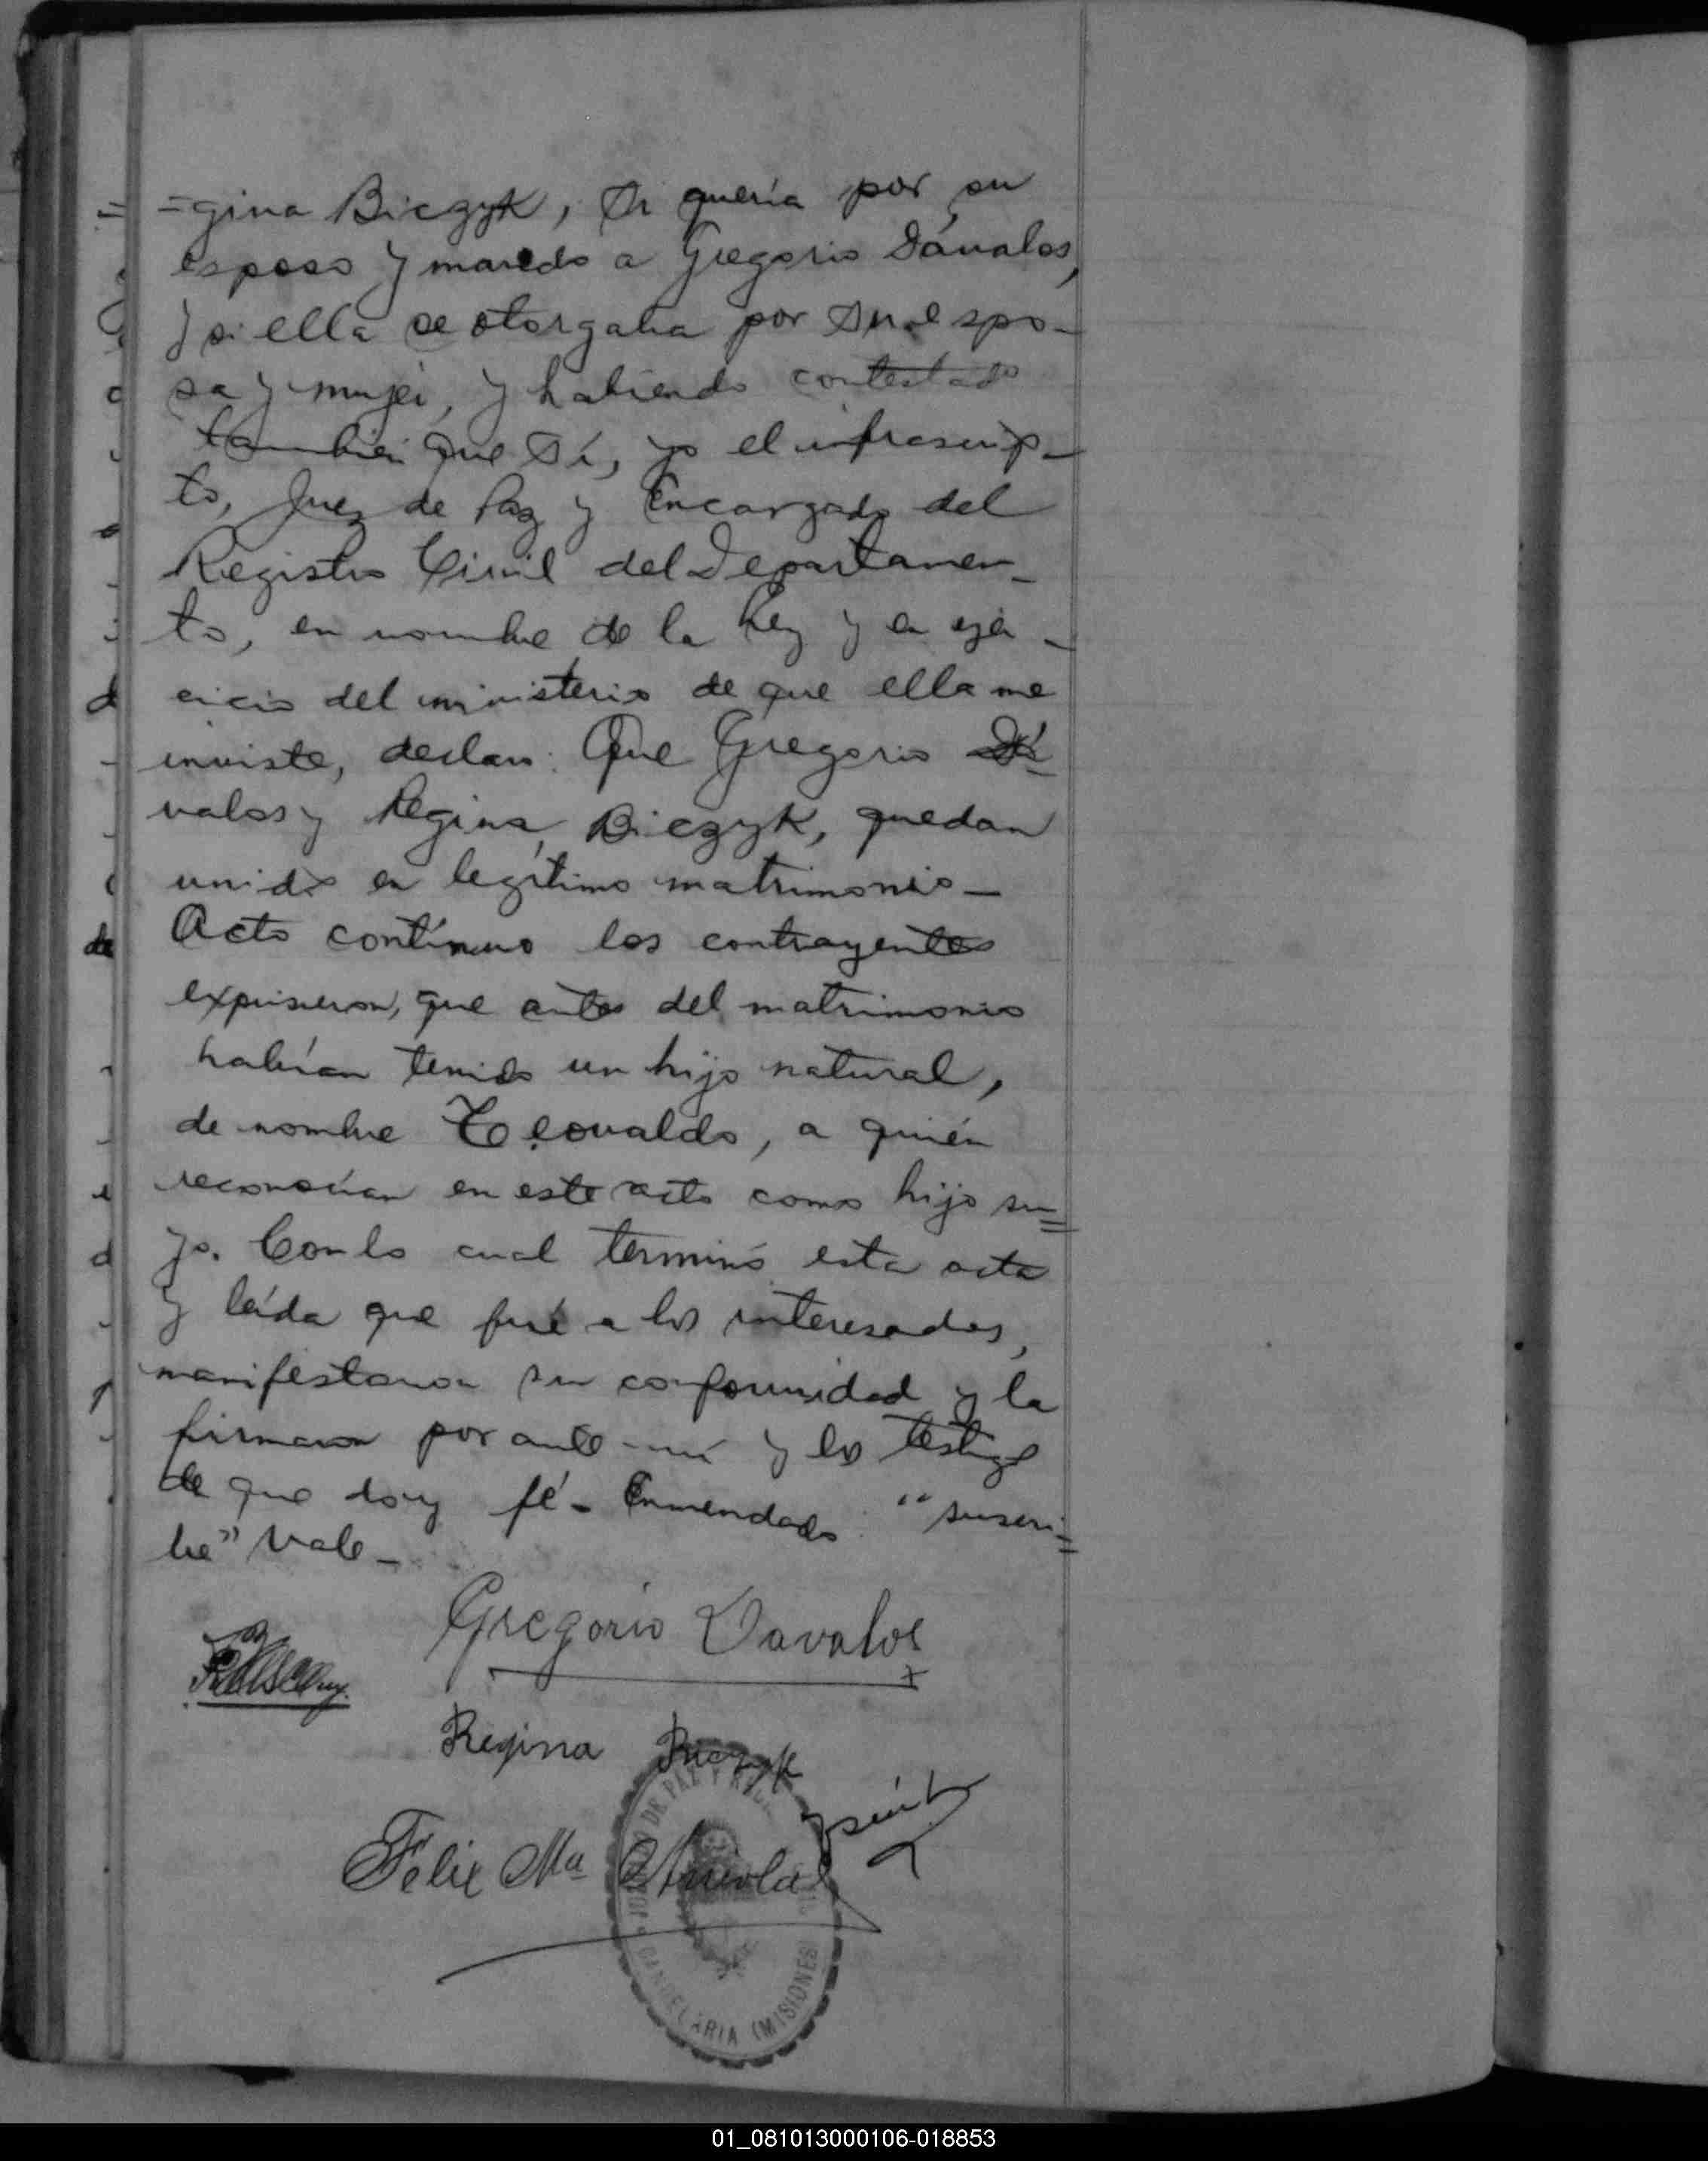 =gina Biczyk, si quería por su
esposo y marido a Gregorio Dávalos,
y si ella se otorgaba por su espo-
sa y mujer, y habiendo contestado
también que sí, yo el infrascrip-
to, Juez de Paz y Encargado del
Registro Civil del Departamen-
to, en nombre de la Ley y en ejer-
cicio del ministerio de que ella me
inviste, declaro: Que Gregorio Dá-
valos y Regina Biczyk, quedan
unidos en legítimo matrimonio-
Acto contínuo los contrayentes
expusieron, que antes del matrimonio
habían tenido un hijo natural,
de nombre Teovaldo, a quién
reconocían en este acto como hijo su=
yo. Con lo cual terminó esta acta
y leída que fué a los interesados,
manifestaron su conformidad y la
firmaron por ante mí y los testigos
de que doy fé- Enmendado: "suscri=
be" Vale-
Gregorio Davalos
Regina Biczyk
Felix Ma Arreola
JUZGADO DE PAZ Y REG
CANDELARIA (MISIONES)
01_081013000106-018853